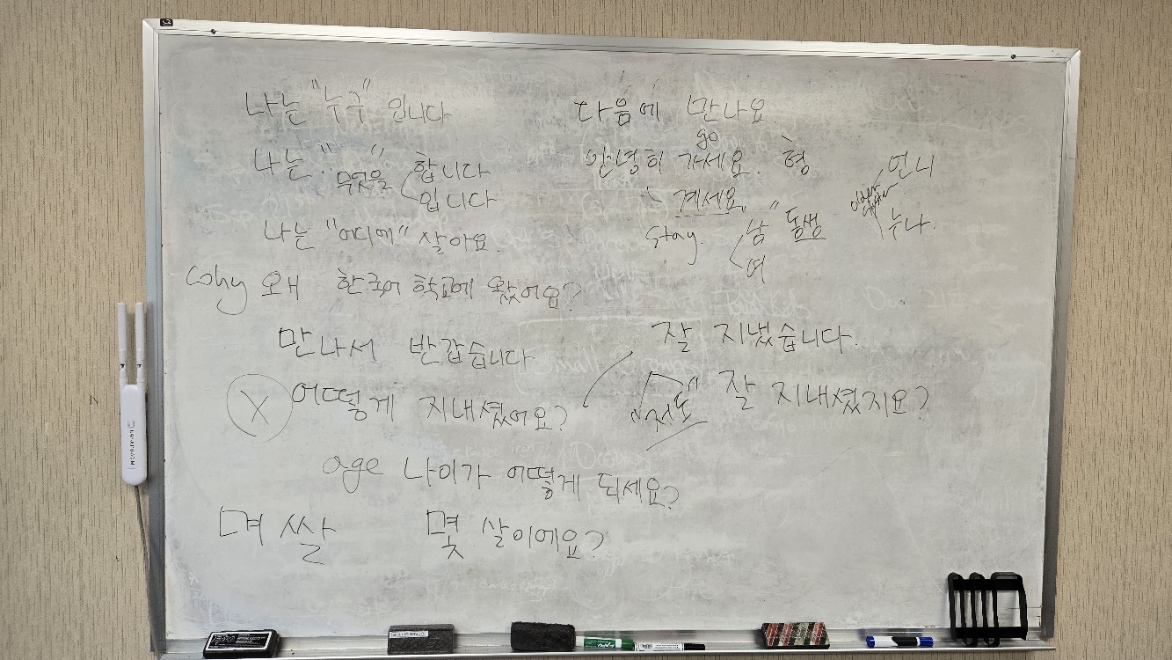 나는 "누구" 입니다
나는 " " 합니다
무엇을 입니다
나는 "어디에" 살아요.
why 왜 한국어 학교에 왔어요?
만나서 반갑습니다
X 어떻게 지내셨어요?
age 나이가 어떻게 되세요?
며 쌀 몇 살이에요?
다음에 만나요
go
안녕히 가세요. 형
" 계세요.
stay 남 동생
여
언니
older sister
누나.
잘 지냈습니다.
"저도" 잘 지내셨지요?